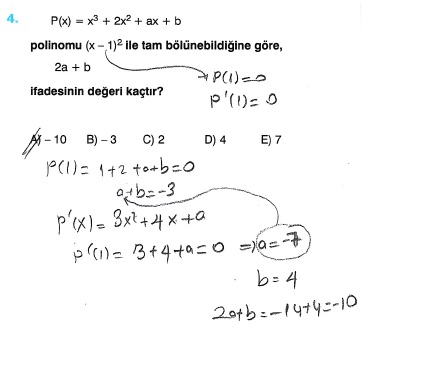 4. P(x) = x³ + 2x² + ax + b
polinomu (x – 1)² ile tam bölünebildiğine göre,
2a + b
→ P(1)=0
ifadesinin değeri kaçtır?
P'(1)=0
A) – 10 B) – 3 C) 2 D) 4 E) 7
P(1)= 1+2+a+b=0
a+b=-3
P'(x)= 3x²+4x+a
P'(1)= 3+4+a=0 ⇒ a=-7
b=4
2a+b=-14+4=-10